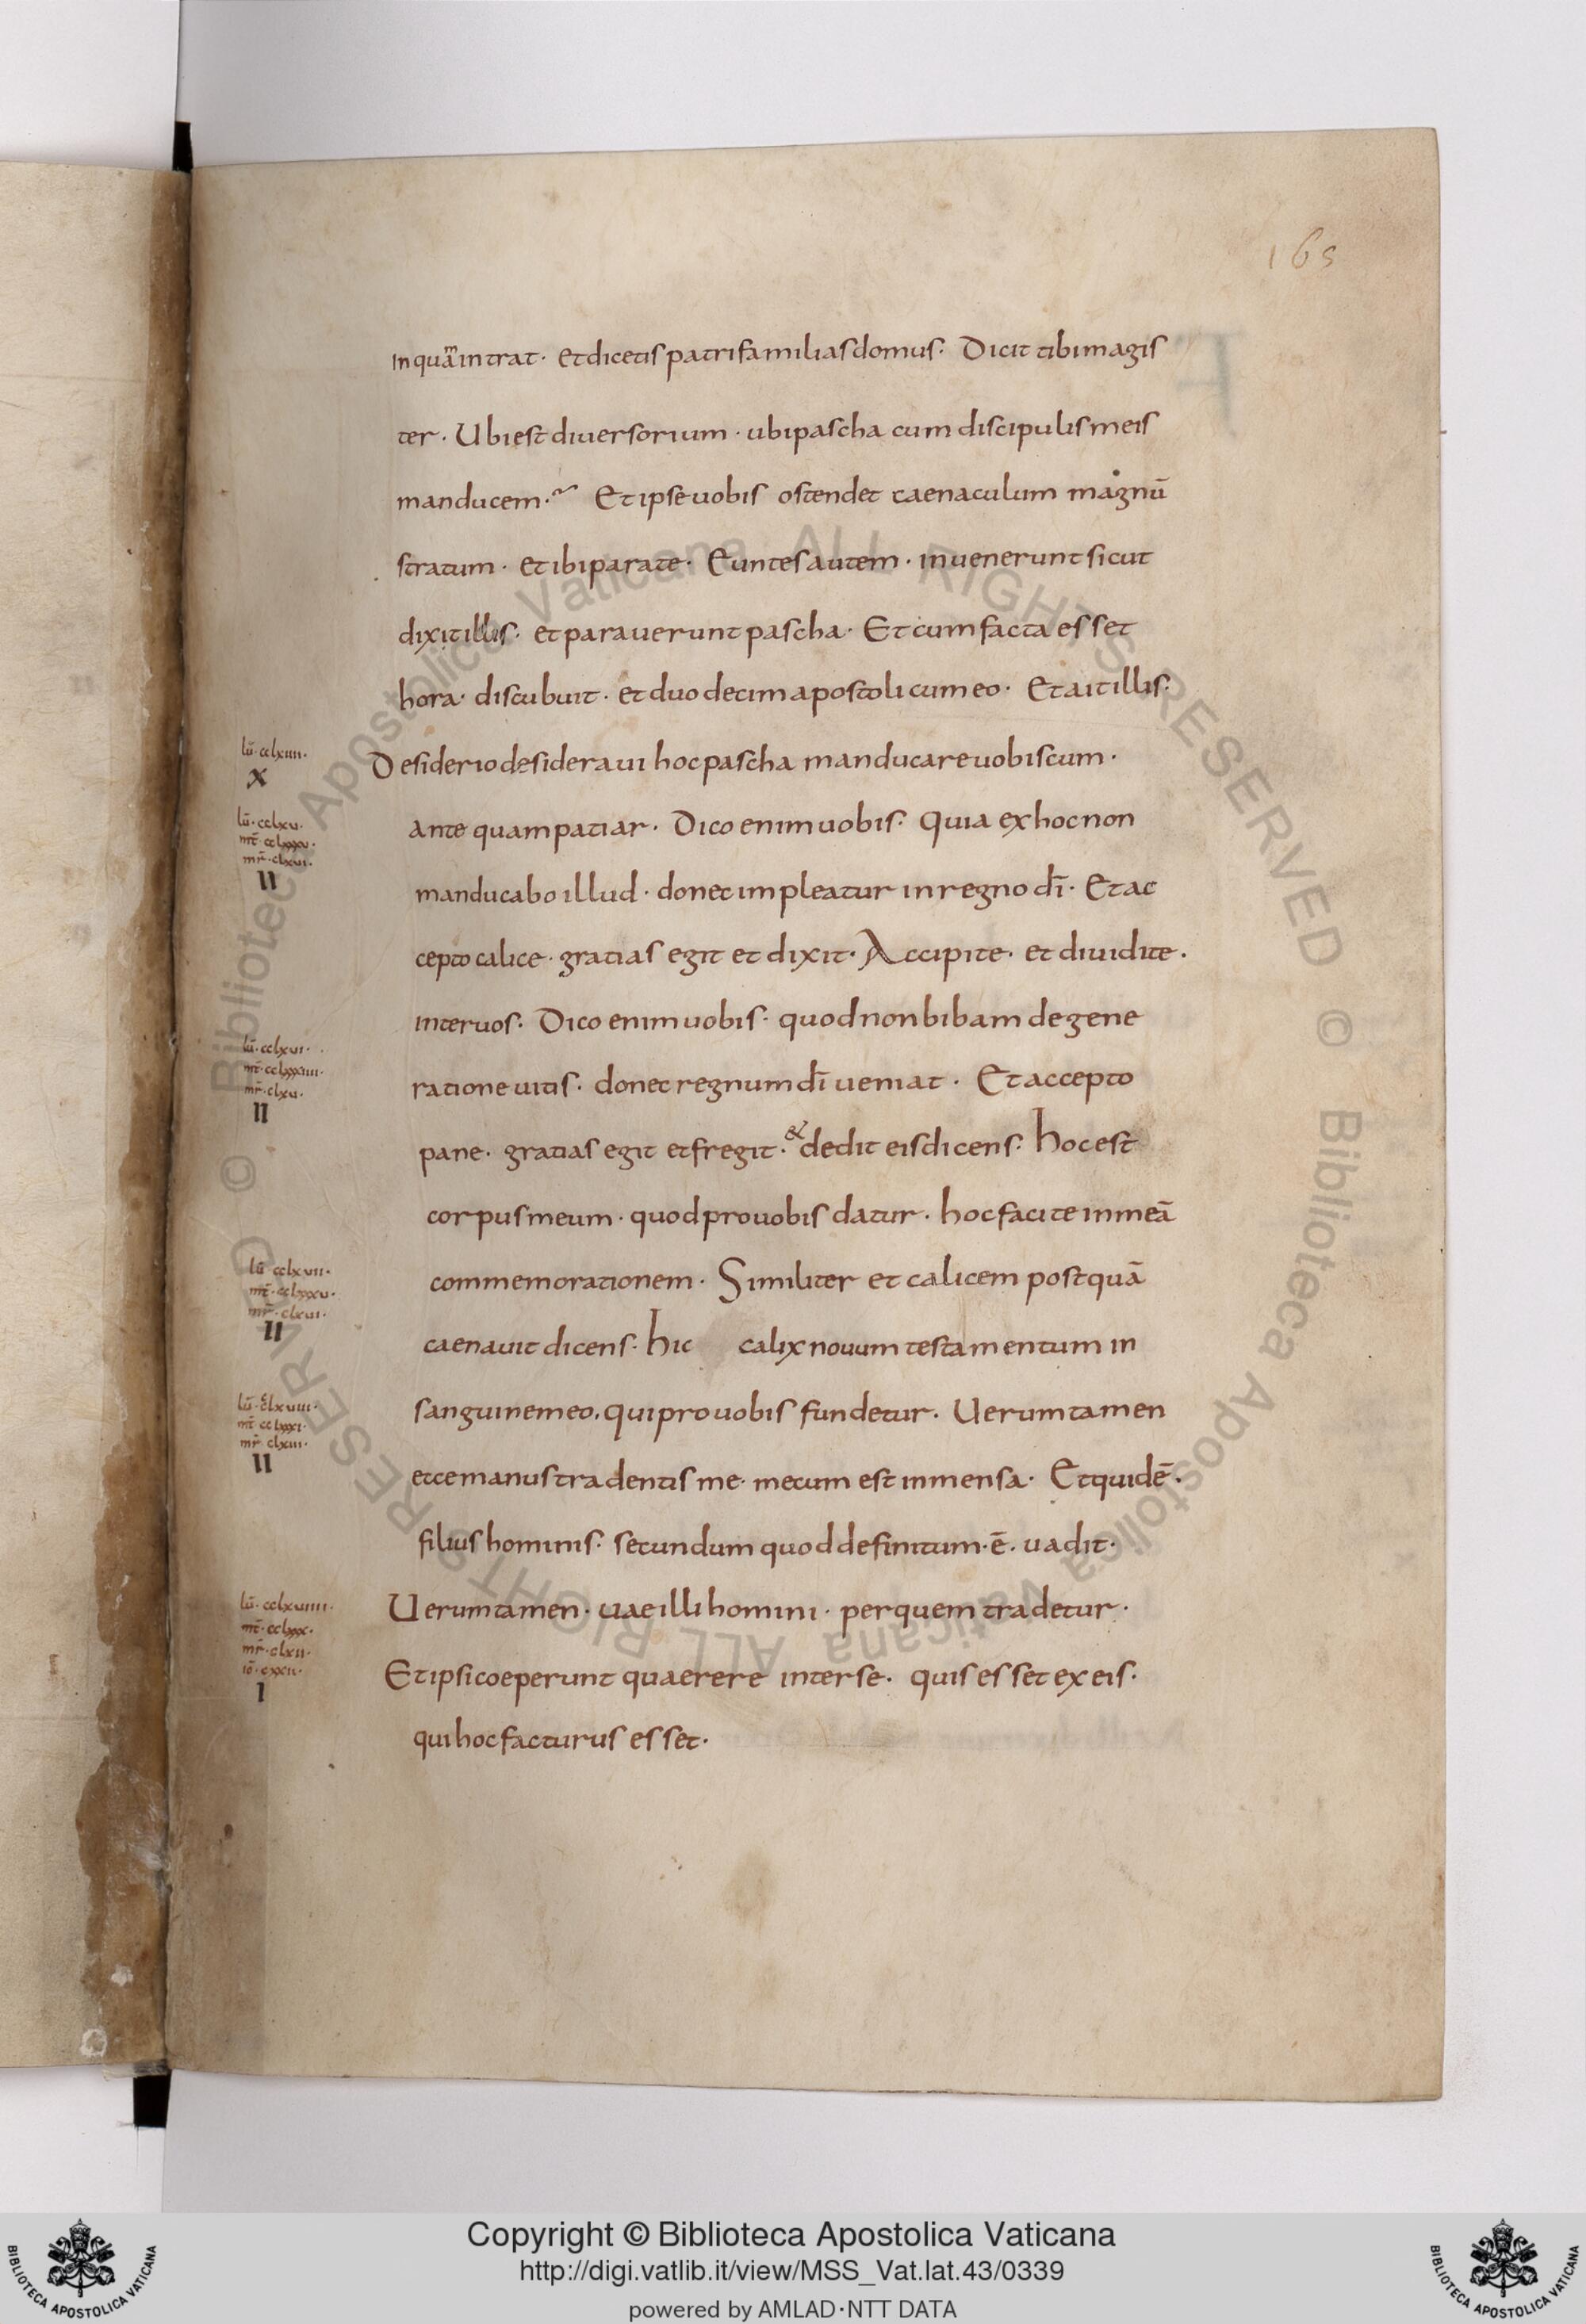 165
in quā intrat· et dicetis patrifamilias domus· Dicit tibi magis
ter· Ubi est diuersorium· ubi pascha cum discipulis meis
manducem· Et ipse uobis ostendet caenaculum magnū
stratum· et ibi parate· Euntes autem· inuenerunt sicut
dixit illis· et parauerunt pascha· Et cum facta esset
hora· discubuit· et duodecim apostoli cum eo· Et ait illis·
lū· cclxiiii·
X
Desiderio desideraui hoc pascha manducare uobiscum·
lū· cclxv·
mt̄· cclxxxv·
mr̄· clxvi·
II
ante quam patiar· Dico enim uobis· quia ex hoc non
manducabo illud· donec impleatur in regno dī· Et ac
cepto calice· gratias egit et dixit· Accipite· et diuidite·
inter uos· Dico enim uobis· quod non bibam de gene
lū· cclxvi·
mt̄· cclxxxiiii·
mr̄· clxv·
II
ratione uitis· donec regnum dī ueniat· Et accepto
pane· gratias egit et fregit· & dedit eis dicens· hoc est
corpus meum· quod pro uobis datur· hoc facite in meā
lū cclxvii·
mt̄· cclxxxv·
mr̄· clxvi·
II
commemorationem· Similiter et calicem postquā
caenauit dicens· hic calix nouum testamentum in
lū· cclxviii·
mt̄· cclxxxi·
mr̄ clxiii·
II
sanguine meo, qui pro uobis fundetur· Uerumtamen
ecce manus tradentis me· mecum est in mensa· Et quidē·
filius hominis· secundum quod definitum· ē· uadit·
lū· cclxviiii·
mt̄· cclxxx·
mr̄· clxii·
iō· cxxii·
I
Uerumtamen· uae illi homini· per quem tradetur·
Et ipsi coeperunt quaerere inter se· quis esset ex eis·
qui hoc facturus esset·
© Biblioteca Apostolica Vaticana ALL RIGHTS RESERVED © Biblioteca Apostolica Vaticana ALL RIGHTS RESERVED
Copyright © Biblioteca Apostolica Vaticana
http://digi.vatlib.it/view/MSS_Vat.lat.43/0339
powered by AMLAD·NTT DATA
BIBLIOTECA APOSTOLICA VATICANA
BIBLIOTECA APOSTOLICA VATICANA